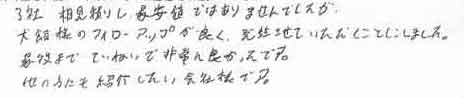 3社 相見積りし、最安値ではありませんでしたが、
犬顔様のフォローアップが良く、契約させていただくことにしました。
最後まで ていねいで非常に良かったです。
他の方にも紹介したい会社様です。